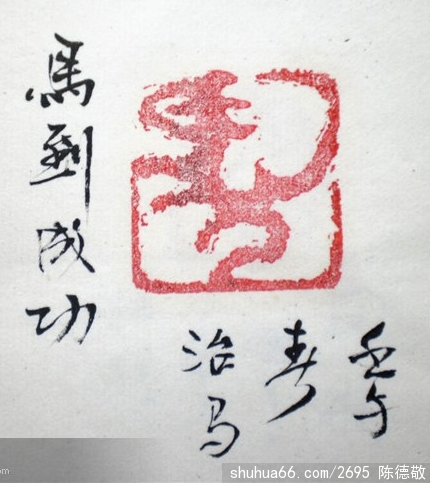 馬到成功
壬午
春
治马
shuhua66.com/2695 陈德敬